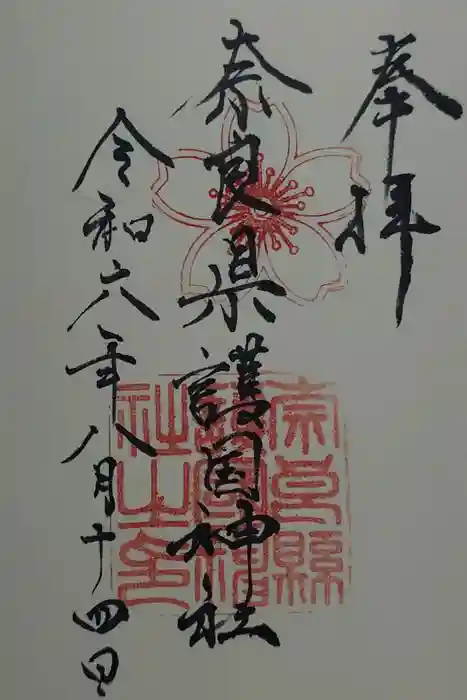 奉拝
奈良県護国神社
令和六年八月十四日
奈良縣
護國神
社之印